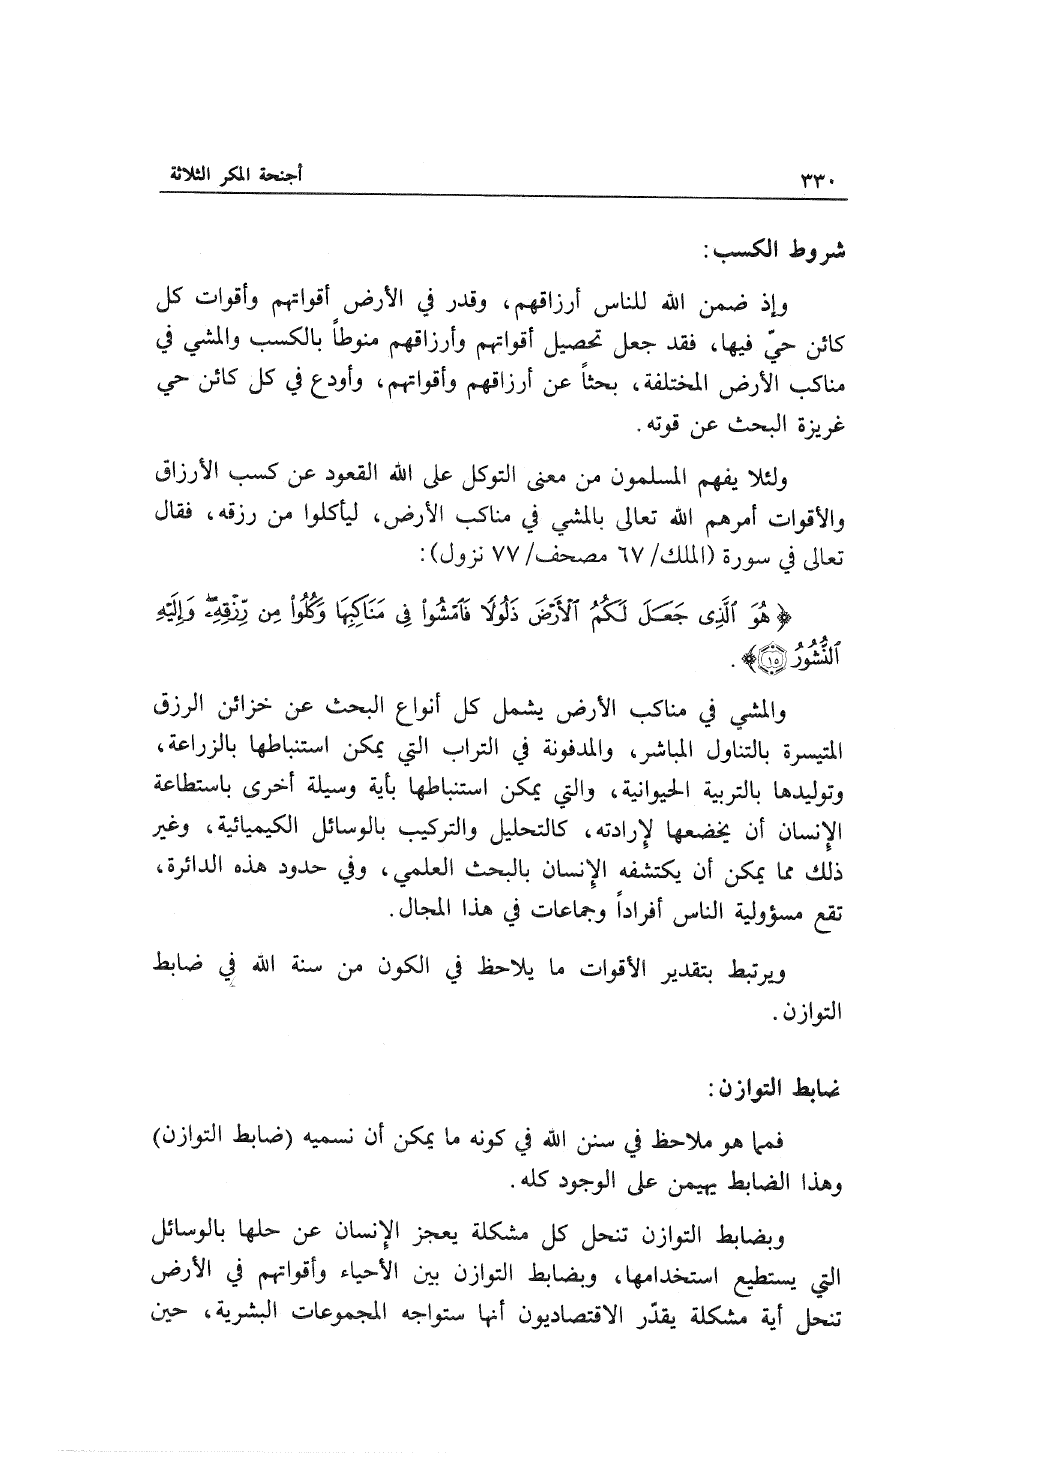 ٣٣٠ أجنحة المكر الثلاثة
شروط الكسب:
وإذ ضمن الله للناس أرزاقهم، وقدر في الأرض أقواتهم وأقوات كل
كائن حيّ فيها، فقد جعل تحصيل أقواتهم وأرزاقهم منوطاً بالكسب والمشي في
مناكب الأرض المختلفة، بحثاً عن أرزاقهم وأقواتهم، وأودع في كل كائن حي
غريزة البحث عن قوته.
ولئلا يفهم المسلمون من معنى التوكل على الله القعود عن كسب الأرزاق
والأقوات أمرهم الله تعالى بالمشي في مناكب الأرض، ليأكلوا من رزقه، فقال
تعالى في سورة (الملك/ ٦٧ مصحف/ ٧٧ نزول):
﴿ هُوَ ٱلَّذِى جَعَلَ لَكُمُ ٱلْأَرْضَ ذَلُولًا فَٱمْشُوا۟ فِى مَنَاكِبِهَا وَكُلُوا۟ مِن رِّزْقِهِۦۖ وَإِلَيْهِ
ٱلنُّشُورُ ١٥﴾.
والمشي في مناكب الأرض يشمل كل أنواع البحث عن خزائن الرزق
المتيسرة بالتناول المباشر، والمدفونة في التراب التي يمكن استنباطها بالزراعة،
وتوليدها بالتربية الحيوانية، والتي يمكن استنباطها بأية وسيلة أخرى باستطاعة
الإنسان أن يخضعها لإرادته، كالتحليل والتركيب بالوسائل الكيميائية، وغير
ذلك مما يمكن أن يكتشفه الإنسان بالبحث العلمي، وفي حدود هذه الدائرة،
تقع مسؤولية الناس أفراداً وجماعات في هذا المجال.
ويرتبط بتقدير الأقوات ما يلاحظ في الكون من سنة الله في ضابط
التوازن.
ضابط التوازن:
فمما هو ملاحظ في سنن الله في كونه ما يمكن أن نسميه (ضابط التوازن)
وهذا الضابط يهيمن على الوجود كله.
وبضابط التوازن تنحل كل مشكلة يعجز الإنسان عن حلها بالوسائل
التي يستطيع استخدامها، وبضابط التوازن بين الأحياء وأقواتهم في الأرض
تنحل أية مشكلة يقدّر الاقتصاديون أنها ستواجه المجموعات البشرية، حين